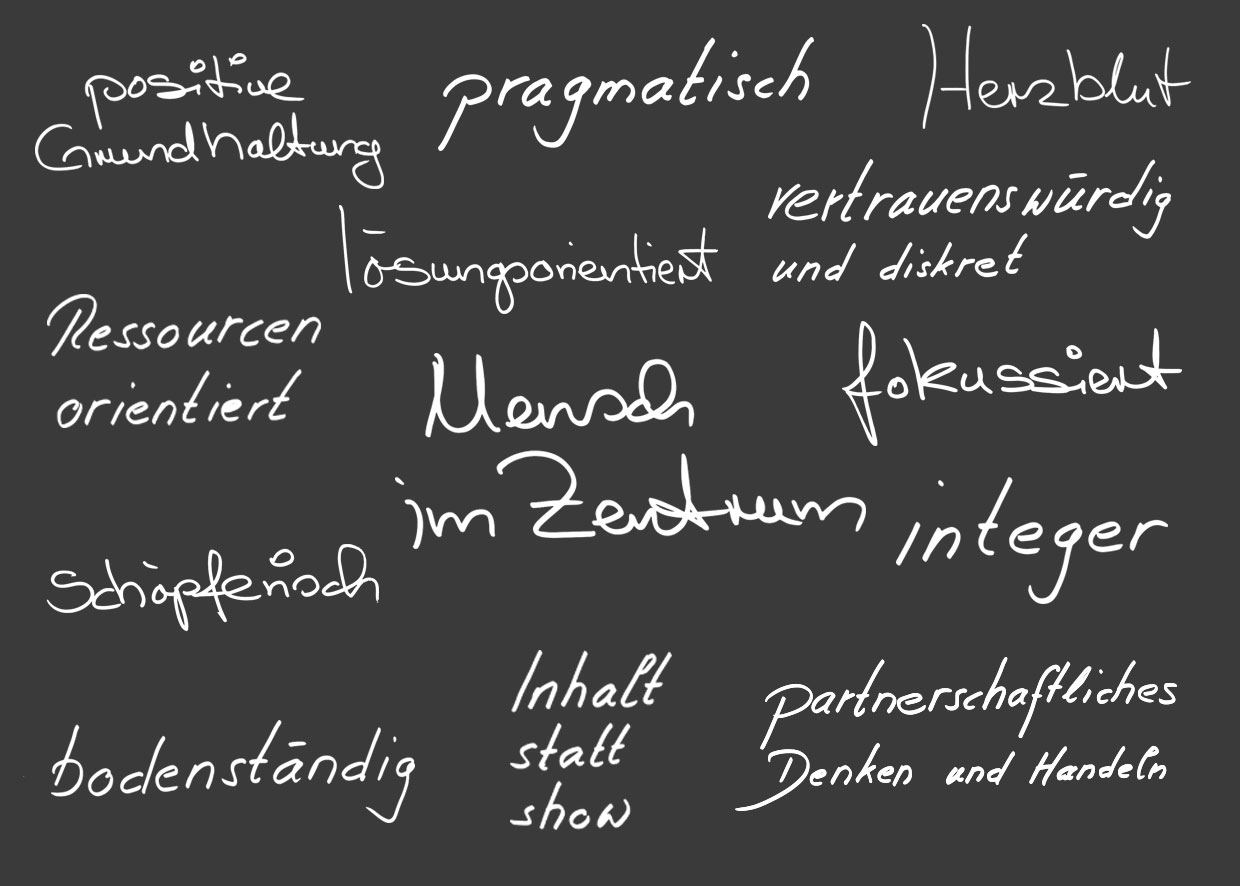 positive
Grundhaltung
pragmatisch
Herzblut
vertrauenswürdig
und diskret
lösungsorientiert
Ressourcen
orientiert
Mensch
im Zentrum
fokussiert
integer
Schöpferisch
bodenständig
Inhalt
statt
show
Partnerschaftliches
Denken und Handeln